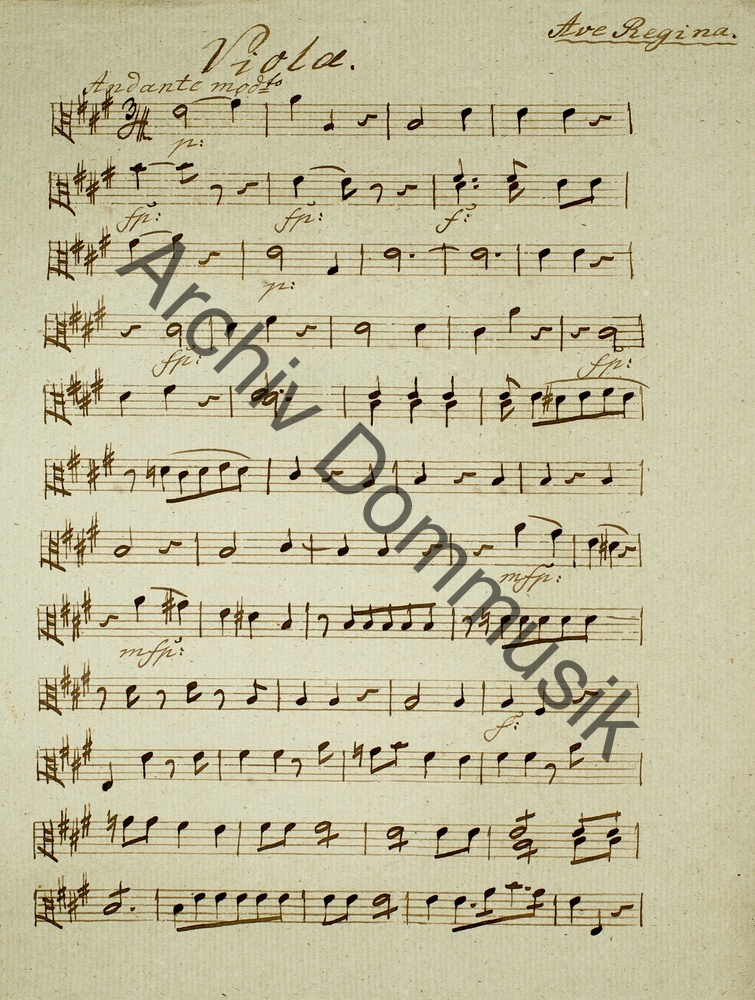 Ave Regina.
Viola.
Andante modto
p:
fp: fp: f:
p:
fp: fp:
mfp:
mfp:
f:
Archiv Dommusik